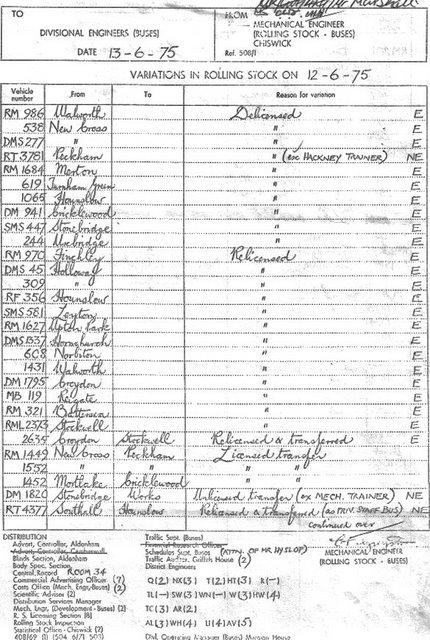 TO
DIVISIONAL ENGINEERS (BUSES)
DATE 13-6-75
FROM
MECHANICAL ENGINEER
(ROLLING STOCK - BUSES)
CHISWICK
Ref. 508/1
VARIATIONS IN ROLLING STOCK ON 12-6-75
Vehicle number From To Reason for variation
RM 986 Walworth Delicensed E
538 New Cross " E
DMS 277 " " E
RT 3781 Peckham " (ex HACKNEY TRAINER) NE
RM 1684 Merton " E
619 Turnham Green " E
1065 Hounslow " E
DM 941 Cricklewood " E
SMS 447 Stonebridge " E
244 Uxbridge " E
RM 970 Finchley Relicensed E
DMS 45 Holloway " E
309 " " E
RF 356 Hounslow " E
SMS 581 Leyton " E
RM 1627 Upton Park " E
DMS 1337 Hornchurch " E
608 Norbiton " E
1431 Walworth " E
DM 1795 Croydon " E
MB 119 Reigate " E
RM 321 Battersea " E
RML 2373 Stockwell " E
2635 Croydon Stockwell Relicensed & transferred E
RM 1449 New Cross Peckham Licensed transfer
1552 " " "
1452 Mortlake Cricklewood "
DM 1820 Stonebridge Works Unlicensed transfer (ex MECH. TRAINER) NE
RT 4377 Southall Hounslow Relicensed & transferred (as PRIV. STAFF BUS) NE
continued over
DISTRIBUTION
Advert. Controller, Aldenham
Advert. Controller, Camberwell
Blinds Section, Aldenham
Body Spec. Section
Central Record ROOM 34
Commercial Advertising Officer (7)
Costs Office (Mech. Eng-Buses) (2)
Scientific Adviser (2)
Distribution Services Manager
Mech. Engr. (Development - Buses) (2)
R. S. Licensing Section (8)
Rolling Stock Inspection
Statistical Office - Chiswick (2)
Traffic Sept. (Buses)
Financial Research Officer
Schedules Supt. Buses (ATTN. OF MR. HYSLOP)
Traffic Auditor, Griffith House (2)
District Engineers
Q(2) NX(3) T(2) HT(3) R(-)
TL(-) SW(3) WN(-) W(3) HW(4)
TC(3) AR(2)
AL(3) WH(4) U(4) AV(5)
MECHANICAL ENGINEER
(ROLLING STOCK - BUSES)